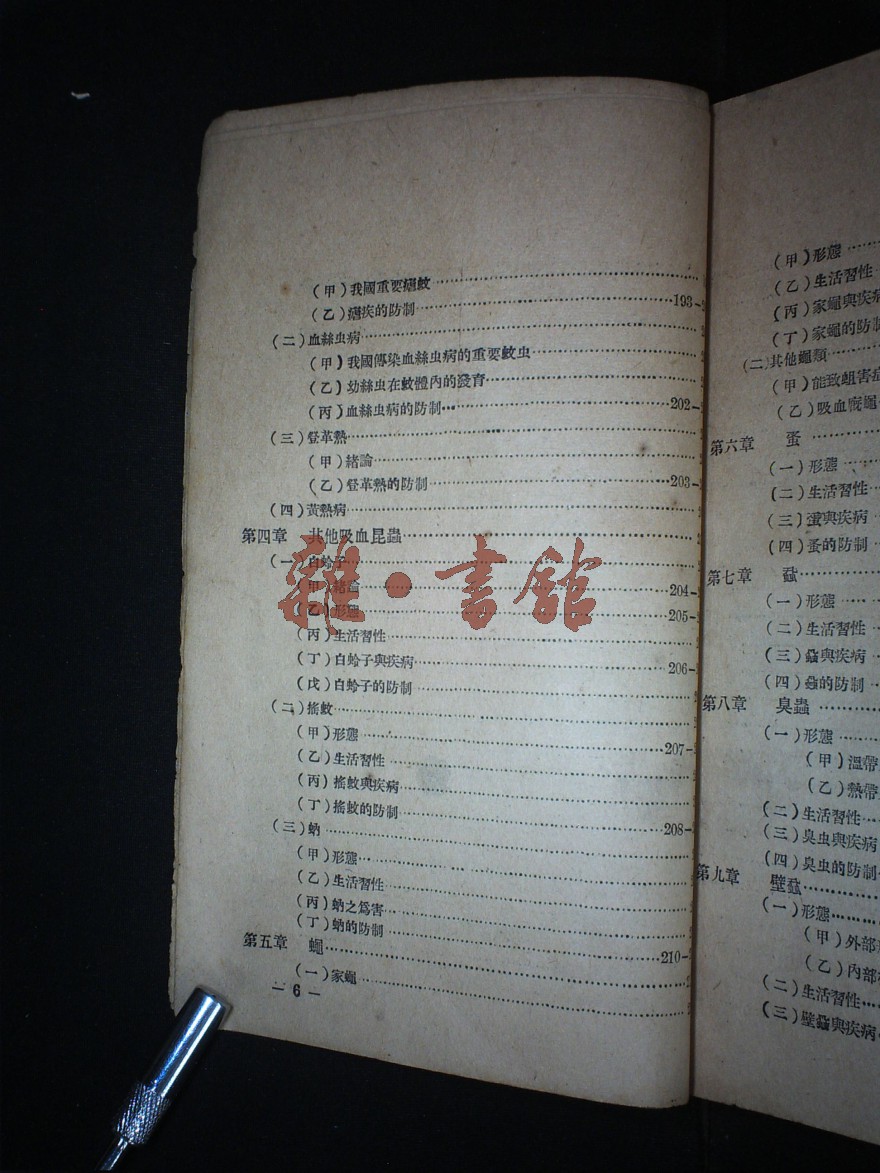 (甲)我國重要瘧蚊
(乙)瘧疾的防制……193-
(二)血絲虫病
(甲)我國傳染血絲虫病的重要蚊虫
(乙)幼絲虫在蚊體內的發育
(丙)血絲虫病的防制……202-
(三)登革熱
(甲)緒論
(乙)登革熱的防制……203-
(四)黃熱病
第四章 其他吸血昆蟲
(一)白蛉子
(甲)緒論……204-
(乙)形態……205-
(丙)生活習性
(丁)白蛉子與疾病……206-
(戊)白蛉子的防制
(二)搖蚊
(甲)形態……207-
(乙)生活習性
(丙)搖蚊與疾病
(丁)搖蚊的防制……208-
(三)蚋
(甲)形態
(乙)生活習性
(丙)蚋之爲害
(丁)蚋的防制
第五章 蠅……210-
(一)家蠅
— 6 —
雜·書舘
(甲)形態
(乙)生活習性
(丙)家蠅與疾病
(丁)家蠅的防制
(二)其他蠅類
(甲)能致蛆害
(乙)吸血蠅
第六章 蚤
(一)形態
(二)生活習性
(三)蚤與疾病
(四)蚤的防制
第七章 蝨
(一)形態
(二)生活習性
(三)蝨與疾病
(四)蝨的防制
第八章 臭蟲
(一)形態
(甲)溫帶
(乙)熱帶
(二)生活習性
(三)臭虫與疾病
(四)臭虫的防制
第九章 壁蝨
(一)形態
(甲)外部
(乙)內部
(二)生活習性
(三)壁蝨與疾病